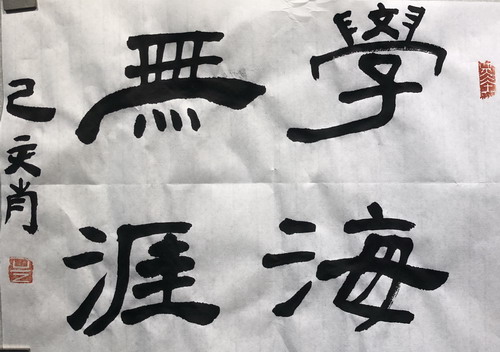 學海
無涯
己亥肖